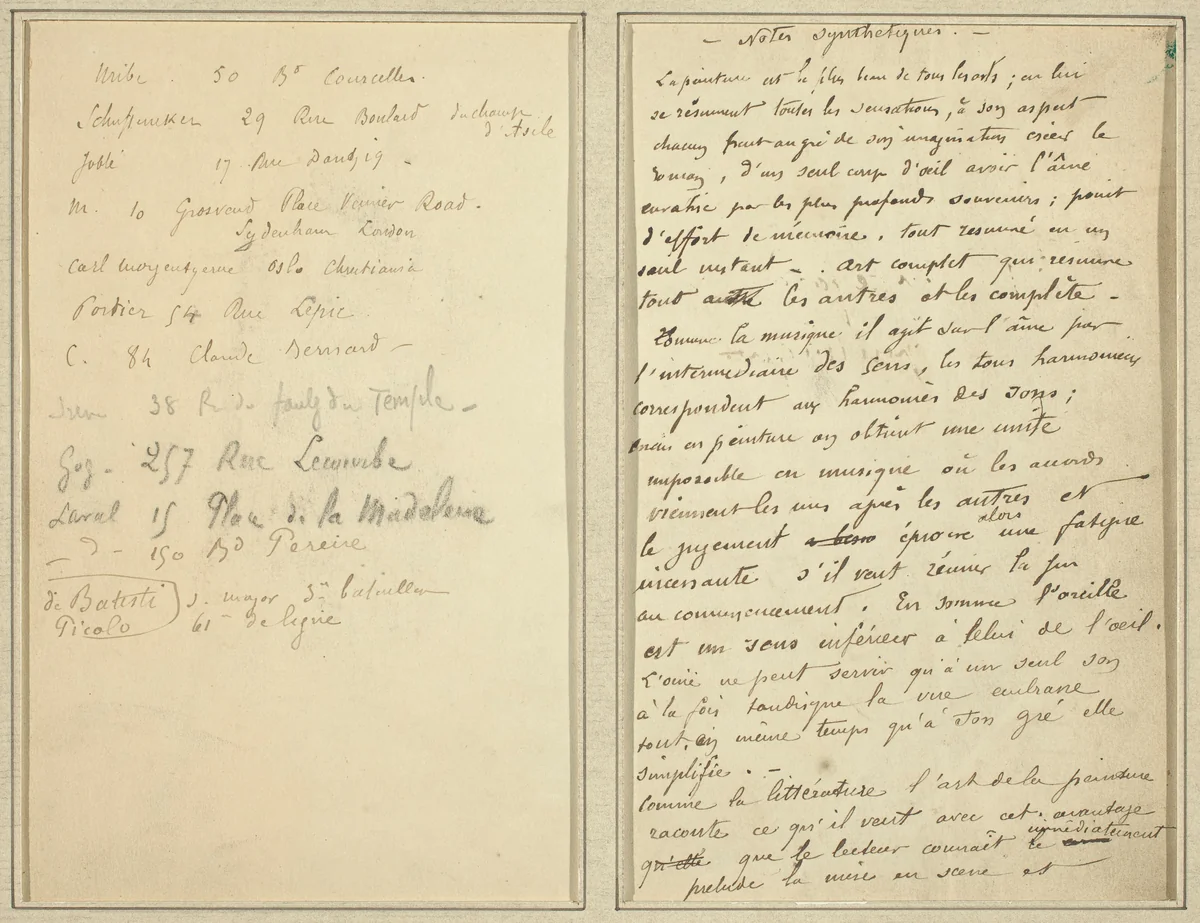 Uribe . 50 Bd Courcelles.
Schuffeneker 29 Rue Boulard du champ
d'Asile
Jobbé 17 Rue Dantzig -
M. 10 Grosvend Place Venner Road.
Sydenham London
Carl Oslo Christiania
Portier 54 Rue Lepic.
C. 84 Claude Bernard -
38 R. du faubg du Temple -
Gog - 257 Rue Lecourbe
Laval 15 Place de la Madeleine
- d - 150 Bd Pereire
de Batisti s. major 3me bataillon
Picolo 61me de ligne
- Notes synthetiques. -
La peinture est le plus beau de tous les arts ; en lui
se résument toutes les sensations, à son aspect
chacun peut au gré de son imagination créer le
roman, d'un seul coup d'oeil avoir l'âme
envahie par les plus profonds souvenirs ; point
d'effort de mémoire, tout resumé en un
seul instant -. Art complet qui résume
tout les autres et les complète -
Comme la musique il agit sur l'âme par
l'intermédiaire des sens, les tons harmonieux
correspondent aux harmonies des sons ;
mais en peinture on obtient une unité
impossible en musique où les accords
viennent les uns après les autres et
le jugement éprouve alors une fatigue
incessante s'il veut réunir la fin
au commencement. En somme l'oreille
est un sens inférieur à celui de l'oeil.
L'ouïe ne peut servir qu'à un seul son
à la fois tandisque la vue embrasse
tout, en même temps qu'à son gré elle
simplifie. -
Comme la littérature l'art de la peinture
raconte ce qu'il veut avec cet avantage
qu'elle que le lecteur connaît immédiatement le
prelude la mise en scene et